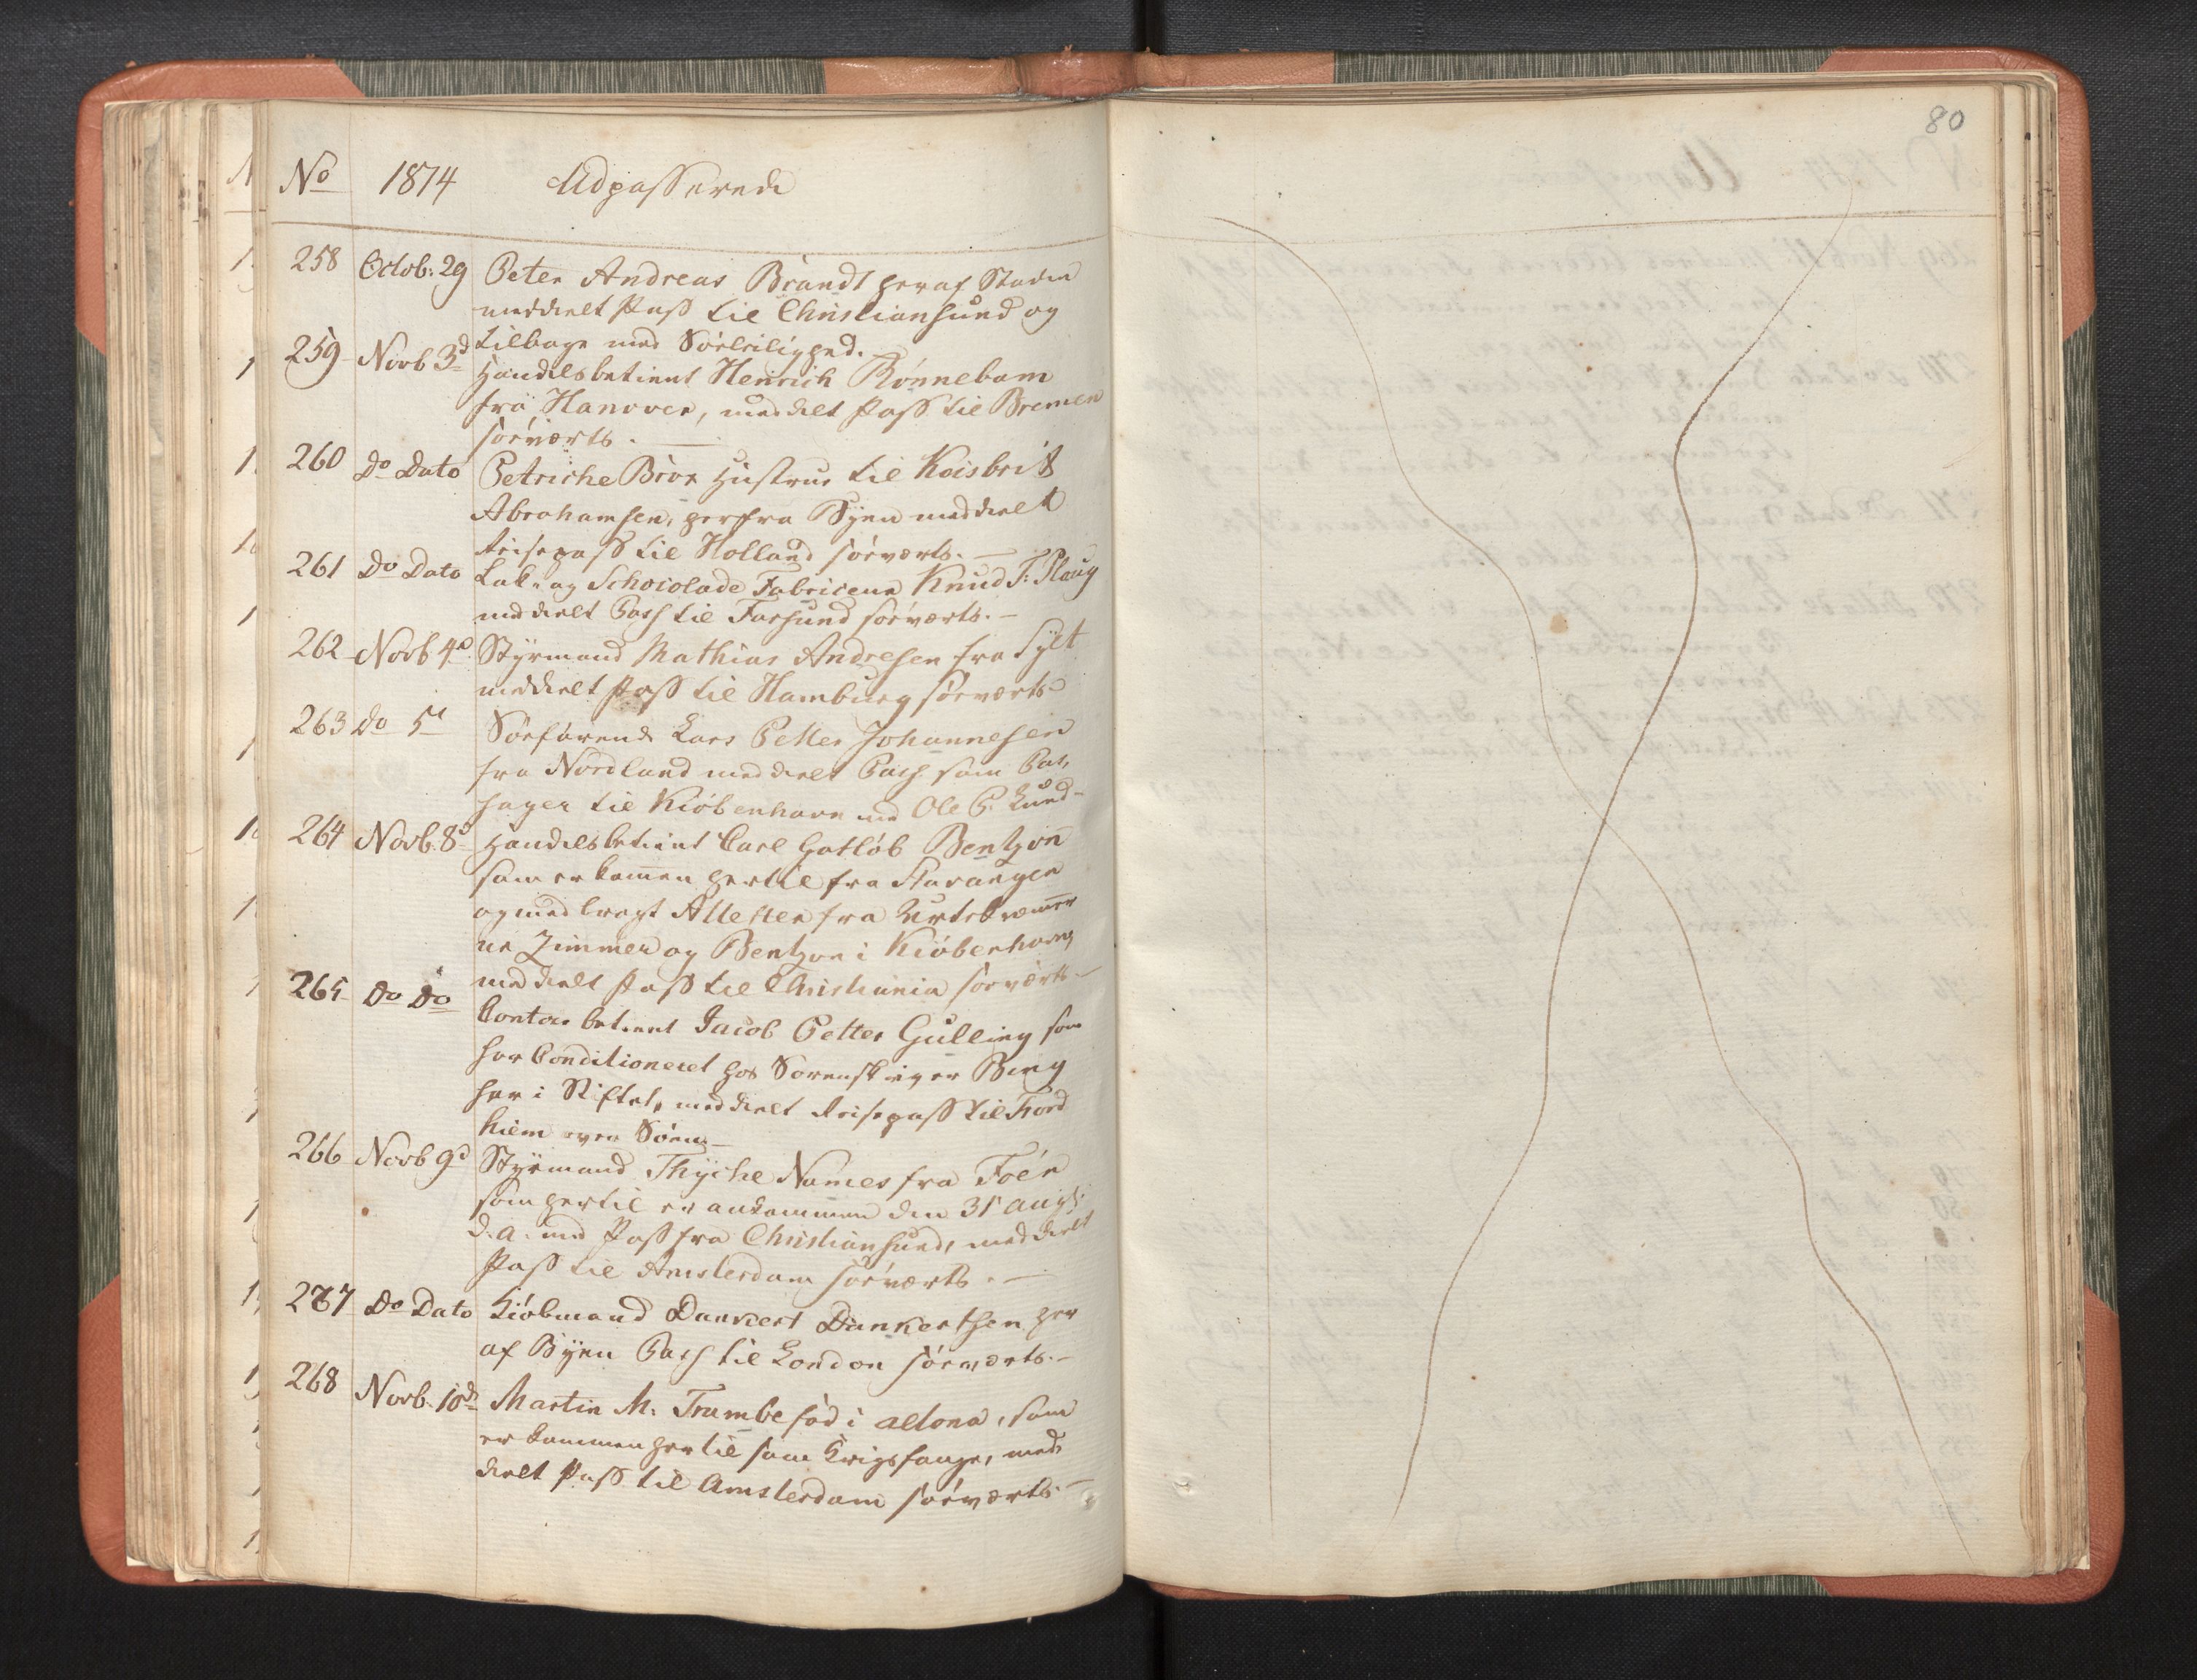 80
No 1814 Udpasserede
258 Octob: 29 Peter Andreas Brandt her af Staden
meddeelt Pass til Christiansund og
tilbage med Söeleilighed.
259 Novb 3d Handelsbetient Henrich Rönnebam
fra Hanover, meddelt Pass til Bremen
söeværts.
260 Do Dato Petriche Hustrue til Koisbrit
Abrahamsen, her fra Byen meddeelt
Reisepass til Holland söeværts.
261 Do Dato Lak- og Schocolade Fabriceur Knud F: Plaug
meddeelt Pass til Farsund söeværts.
262 Novb 4d Styrmand Mathias Andresen fra Sylt
meddeelt Pass til Hamburg söeværts
263 Do 5d Söefarende Lars Petter Johannesen
fra Nordland meddeelt Pass som Pas,
sager til Kiöbenhavn med Ole P. Lund-
264 Novb. 8d Handelsbetient Carl Gotlöb Bentzon
som er kommen hertil fra Stavanger
og medbragt Attester fra Urtekræmmer
ne Zimmer og Bentzon i Kiöbenhavn,
meddeelt Pass til Christiania söeværts
265 Do Do Contoir betient Jacob Petter Gulling som
har Conditioneret hos Sorenskriver Bing
her i Stiftet, meddeelt Reisepass til Trond
hiem over Söen
266 Novb 9d Styrmand Thyche Names fra Foer
som hertil er ankommen den 31 Augt:
d. A. med Pass fra Christiansund, meddeelt
Pass til Amsterdam söeværts.
267 Do Dato Kiöbmand Dankert Dankertsen her
af Byen Pass til London söeværts.
268 Novb. 10de Martin M. Trambe föd i Altona, som
er kommen hertil som Krigsfange, med
deelt Pass til Amsterdam söeværts